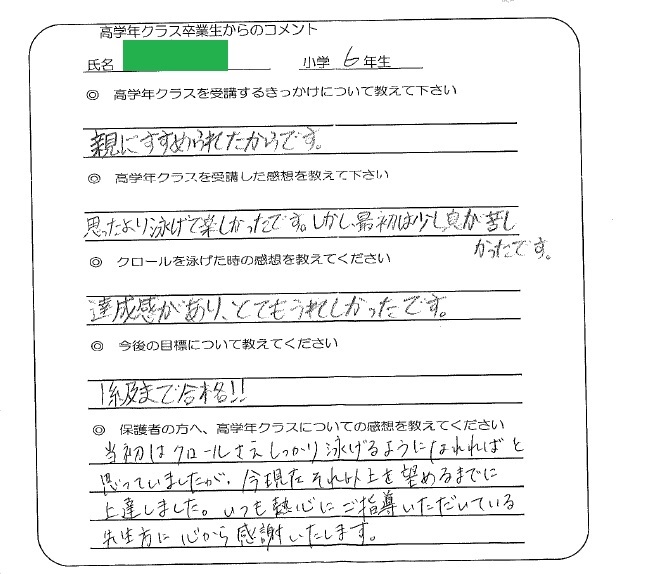 高学年クラス卒業生からのコメント
氏名 小学 6 年生
◎ 高学年クラスを受講するきっかけについて教えて下さい
親にすすめられたからです。
◎ 高学年クラスを受講した感想を教えて下さい
思ったより泳げて楽しかったです。しかし、最初は少し息が苦し
かったです。
◎ クロールを泳げた時の感想を教えてください
達成感があり、とてもうれしかったです。
◎ 今後の目標について教えてください
1級まで合格!!
◎ 保護者の方へ、高学年クラスについての感想を教えてください
当初はクロールさえしっかり泳げるようになれればと
思っていましたが、今現在それ以上を望めるまでに
上達しました。いつも熱心にご指導いただいている
先生方に心から感謝いたします。